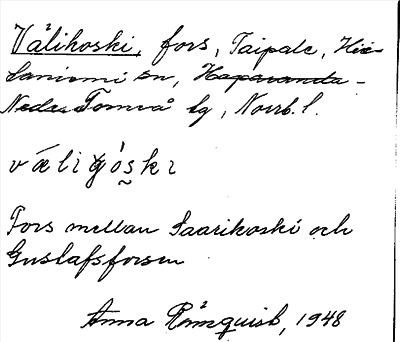 Välikoski, fors, Taipale, Hie-
taniemi sn, Haparanda-
Neder Torneå tg, Norrb. l.
væligóski
Fors mellan Saarikoski och
Gustafsforsen
Anna Rönnquist, 1948